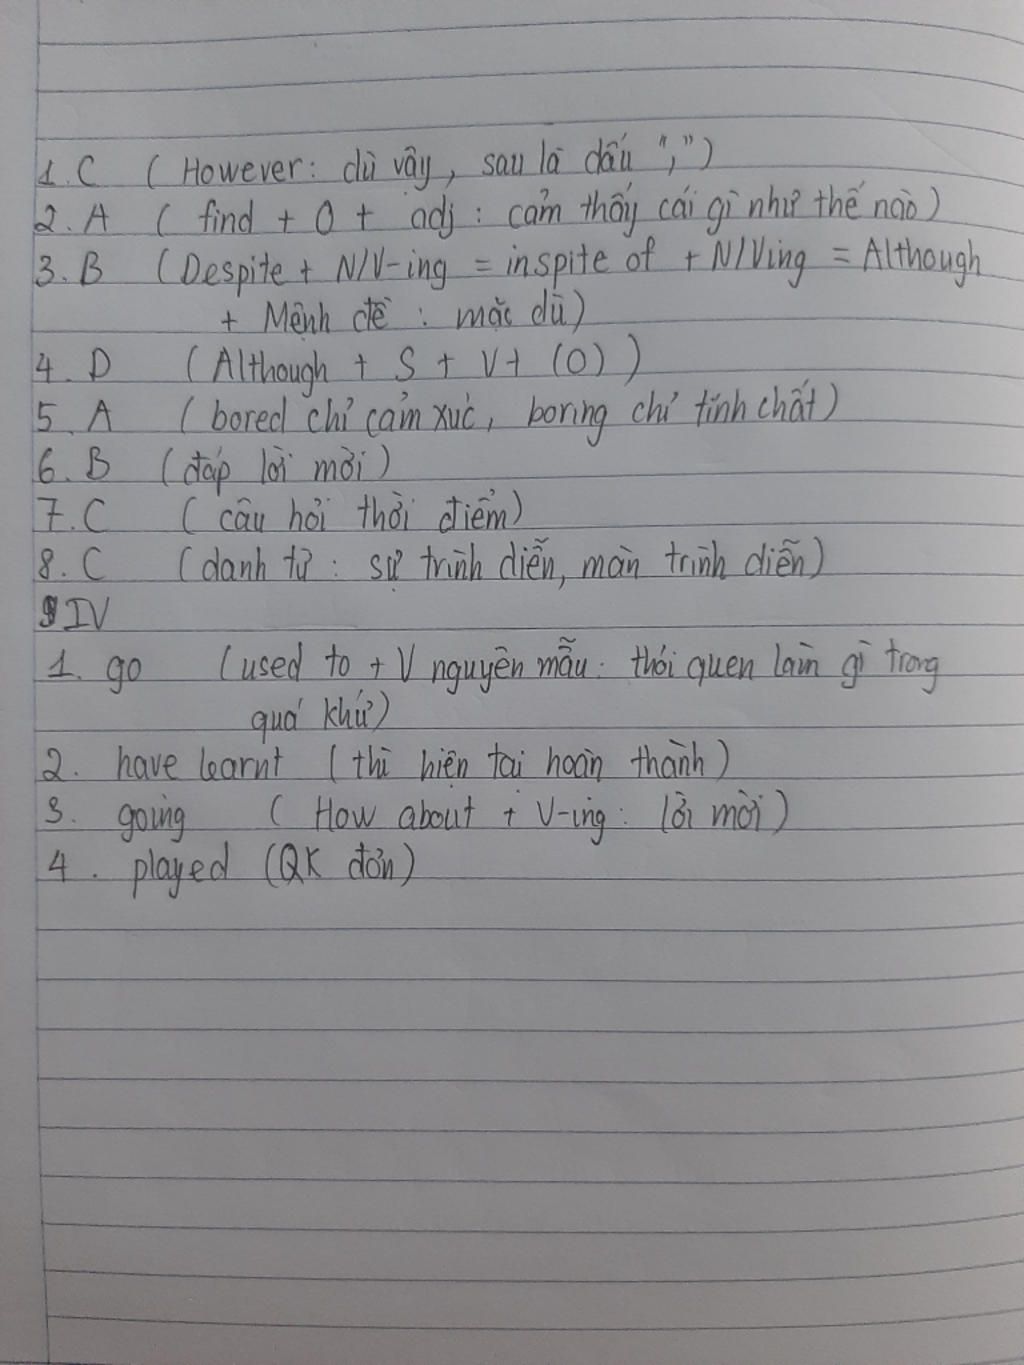 1. C ( However: dù vậy, sau là dấu ",")
2. A ( find + O + adj : cảm thấy cái gì như thế nào)
3. B (Despite + N/V-ing = inspite of + N/Ving = Although
+ Mệnh đề : mặc dù)
4. D (Although + S + V + (O) )
5. A ( bored chỉ cảm xúc, boring chỉ tính chất)
6. B (đáp lời mời)
7. C ( câu hỏi thời điểm)
8. C (danh từ : sự trình diễn, màn trình diễn)
IV
1. go (used to + V nguyên mẫu : thói quen làm gì trong
quá khứ)
2. have learnt (thì hiện tại hoàn thành)
3. going ( How about + V-ing : lời mời)
4. played (QK đơn)